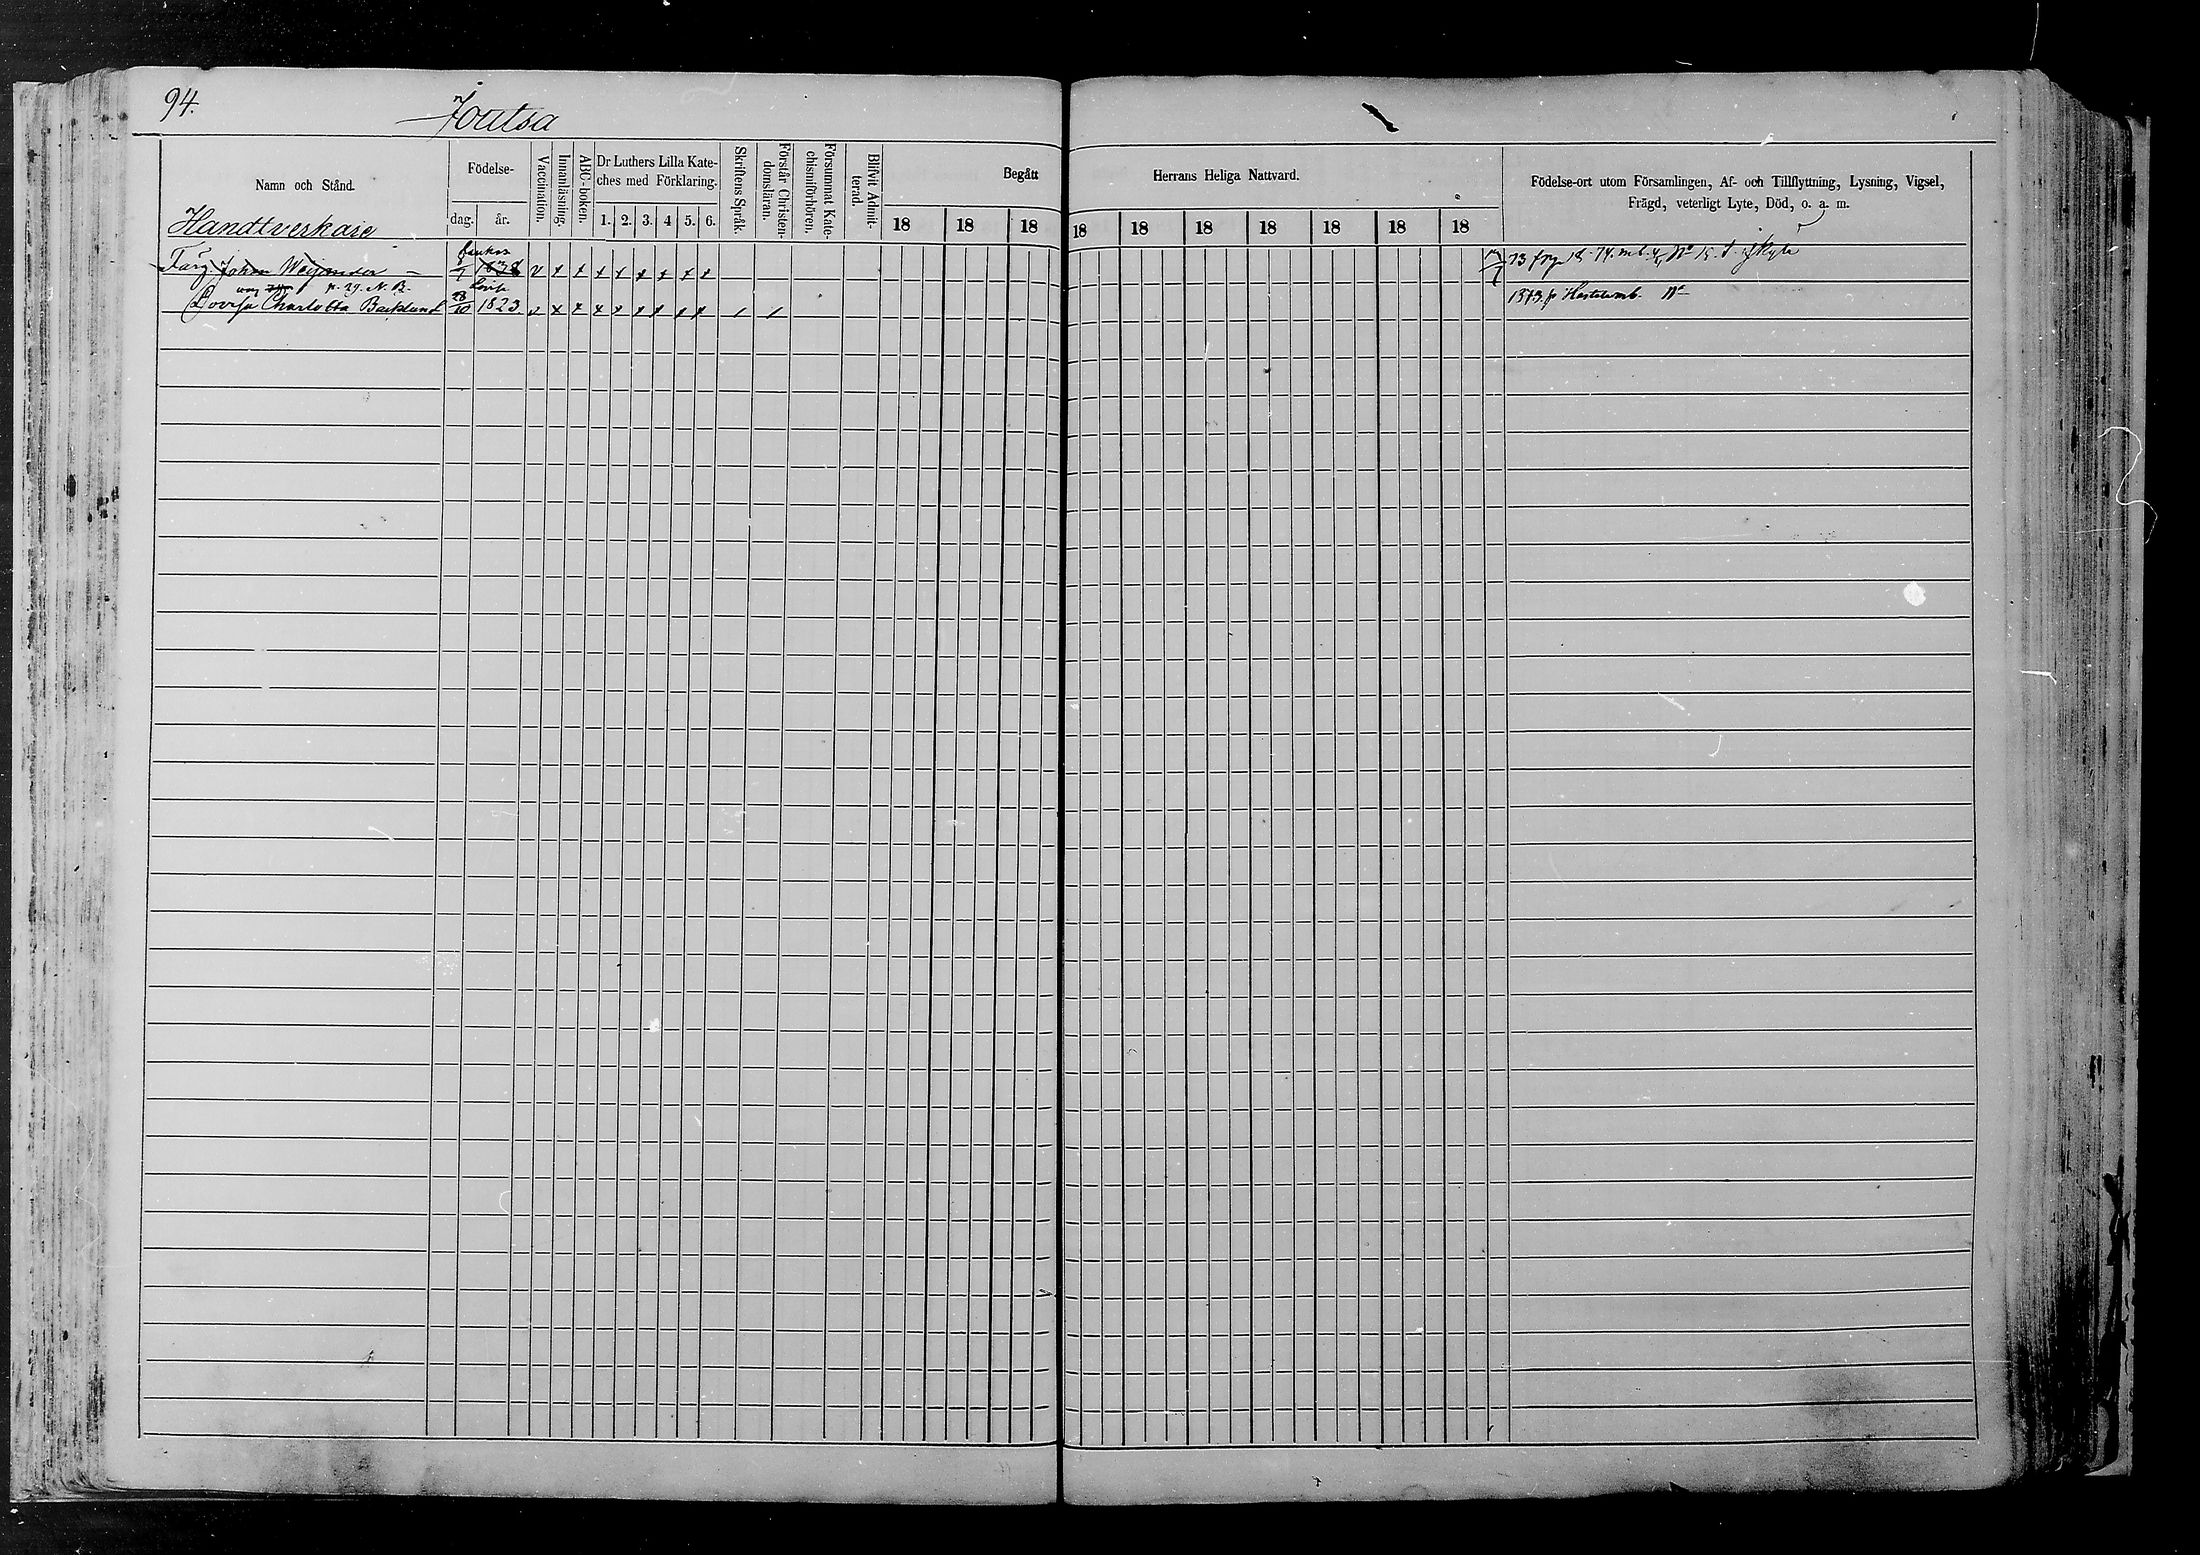 94.
Joutsa
Namn och Stånd.
Födelse-
dag.
år.
Vaccination.
Innanläsning.
ABC-boken.
Dr Luthers Lilla Kate-
ches med Förklaring.
1. 2. 3. 4 5. 6.
Skriftens Språk.
Förstår Christen-
domsläran.
Försummat Kate-
chismiförhören.
Blifvit Admit-
terad.
Begått
18 18 18
Herrans Heliga Nattvard.
18 18 18 18 18 18 18
Födelse-ort utom Församlingen, Af- och Tillflyttning, Lysning, Vigsel,
Frägd, veterligt Lyte, Död, o. a. m.
Handtverkare
Färg. Johan 1838 v x x x x x x x x
p. 29. N. B.
Lovisa Charlotta Backlund 28/10 1823 v x x x x x x x x / /
1873. p